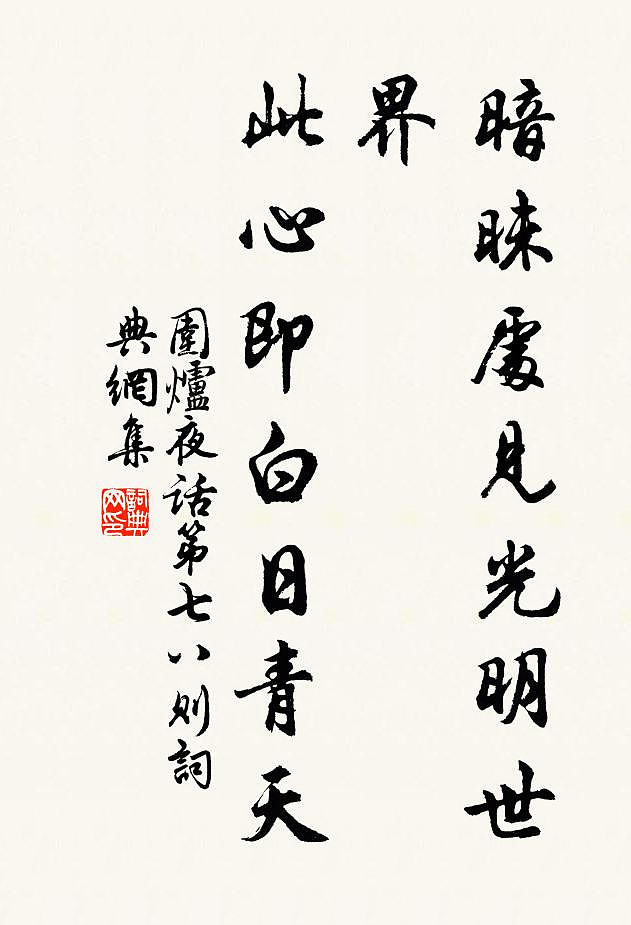 暗昧處見光明世
界
此心即白日青天
圍爐夜话第七八则詞
典網集
詞典網印